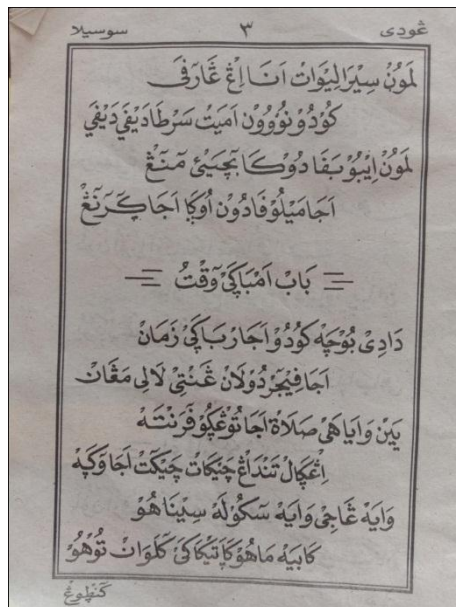 ڠودي ٣ سوسيلا
لَمَوْن سِيْرَا لِيْوَات اَنَا اِڠْ ڠَارَفَىْ
كُوْدُوْ نُوْوُوْن اَمِيْت سَرْطَا دَيْفَيْ دَيْفَيْ
لَمَوْن اِيْبُوْ بَفَا دُوْكَا بَچِيْئَ مَنَڠْ
اَجَا مَيْلُوْ فَادُوْن اُوْݢَا اَجَا ݢَرَنَڠْ
بَابْ اَمْبَاݢَىْ وَقْتُ
دَادِىْ بُوْچَهْ كُوْدُوْ اَجَارْ بَاݢَىْ زَمَانْ
اَجَا فِيْجَرْ دُوْلَانْ غَنْتِىْ لَالِىْ مَڠَانْ
يَيْنْ وَايَاهَىْ صَلَاةْ اَجَا تُوْڠْݢُوْ فَرَنْتَهْ
اِڠْݢَالْ تَنْدَاڠْ چَيْكَاتْ چَيْكَتْ اَجَا وَݢَهْ
وَايَهْ ڠَاجِىْ وَايَهْ سَكُوْلَهْ سِيْنَاهُوْ
كَابَيْهْ مَاهُوْ ݢَاتَيْكَاكَىْ كَلَوَانْ تُوْهُوْ